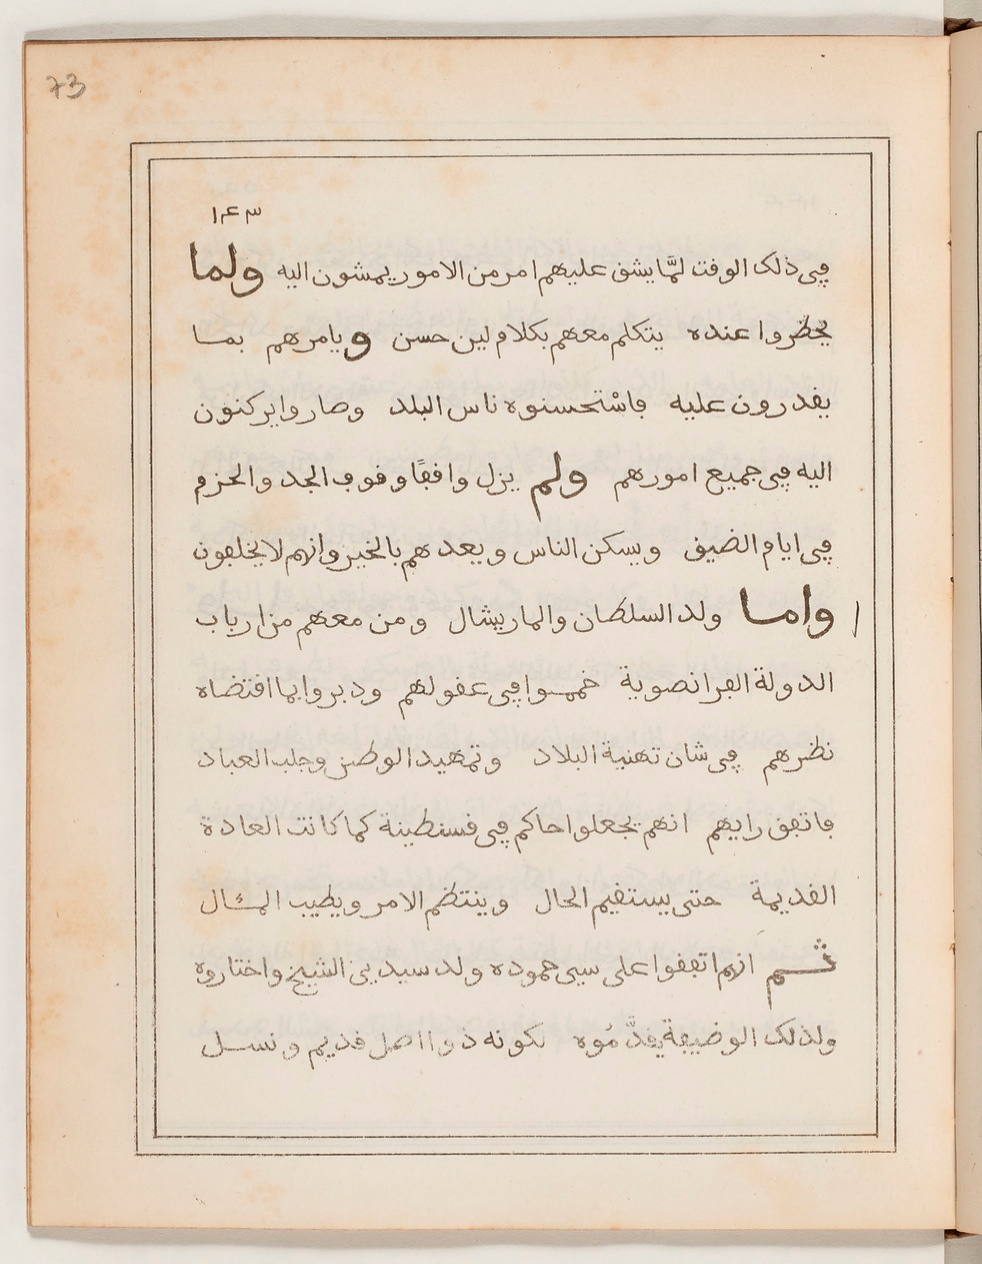 73
١٤٣
في ذلك الوقت لمَّا يشق عليهم امر من الامور يمشون اليه ولما
يحظروا عنده يتكلم معهم بكلام لين حسن ويامرهم بما
يقدرون عليه فاسْتحسنوه ناس البلد وصاروا يركنون
اليه في جميع امورهم ولم يزل وافقًا وقوف الجد والحزم
في ايام الضيق ويسكن الناس ويعدهم بالخير وانهم لا يخلفون
واما ولد السلطان والماريشال ومن معهم من ارباب
الدولة الفرانصوية خمموا في عقولهم ودبروا بما اقتضاه
نظرهم في شان تهنية البلاد وتمهيد الوطن وجلب العباد
فاتفق رايهم انهم يجعلوا حاكم في قسنطينة كما كانت العادة
القديمة حتى يستقيم الحال وينتظم الامر ويطيب المئال
ثم انهم اتفقوا على سيي حموده ولد سيدي الشيخ واختاروه
ولذلك الوضيفة يقدَّمُوه لكونه ذوا اصل قديم ونسل